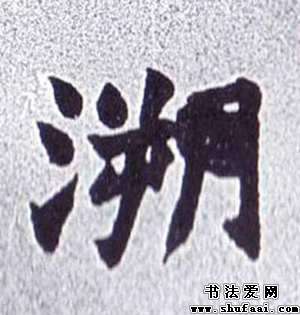 溯
书法爱网
www.shufaai.com